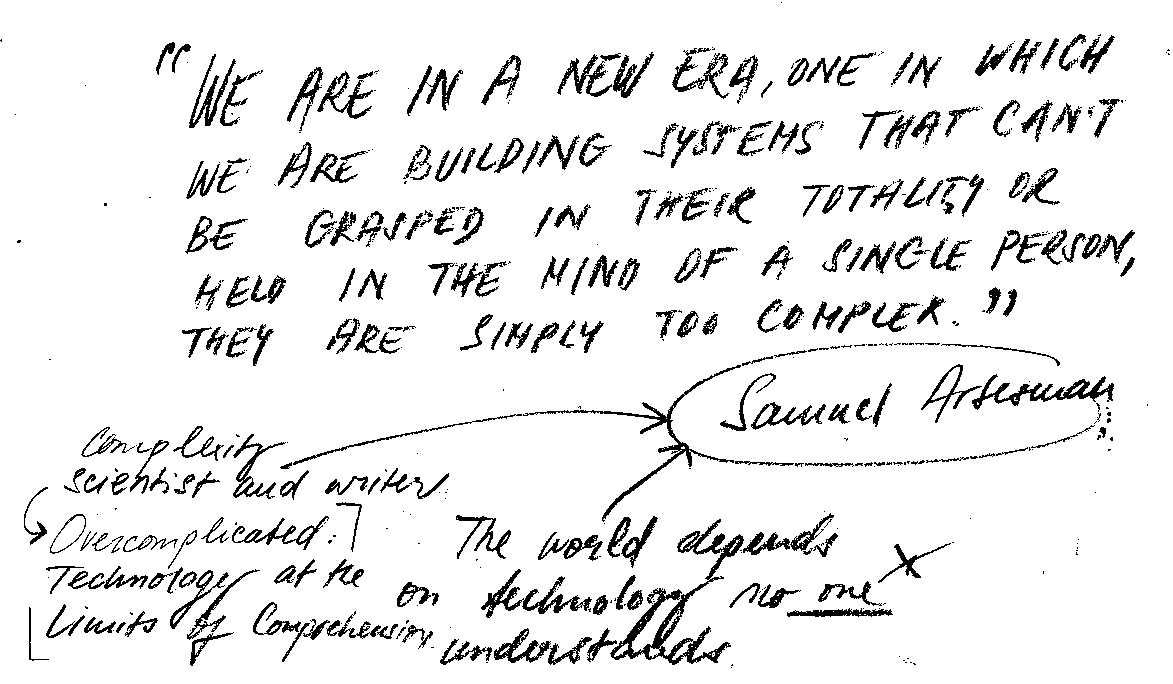 “WE ARE IN A NEW ERA, ONE IN WHICH
WE ARE BUILDING SYSTEMS THAT CAN'T
BE GRASPED IN THEIR TOTALITY OR
HELD IN THE MIND OF A SINGLE PERSON,
THEY ARE SIMPLY TOO COMPLEX.”
Samuel Arbesman
Complexity
scientist and writer
Overcomplicated:
Technology at the
Limits of Comprehension
The world depends
on technology no one
understands